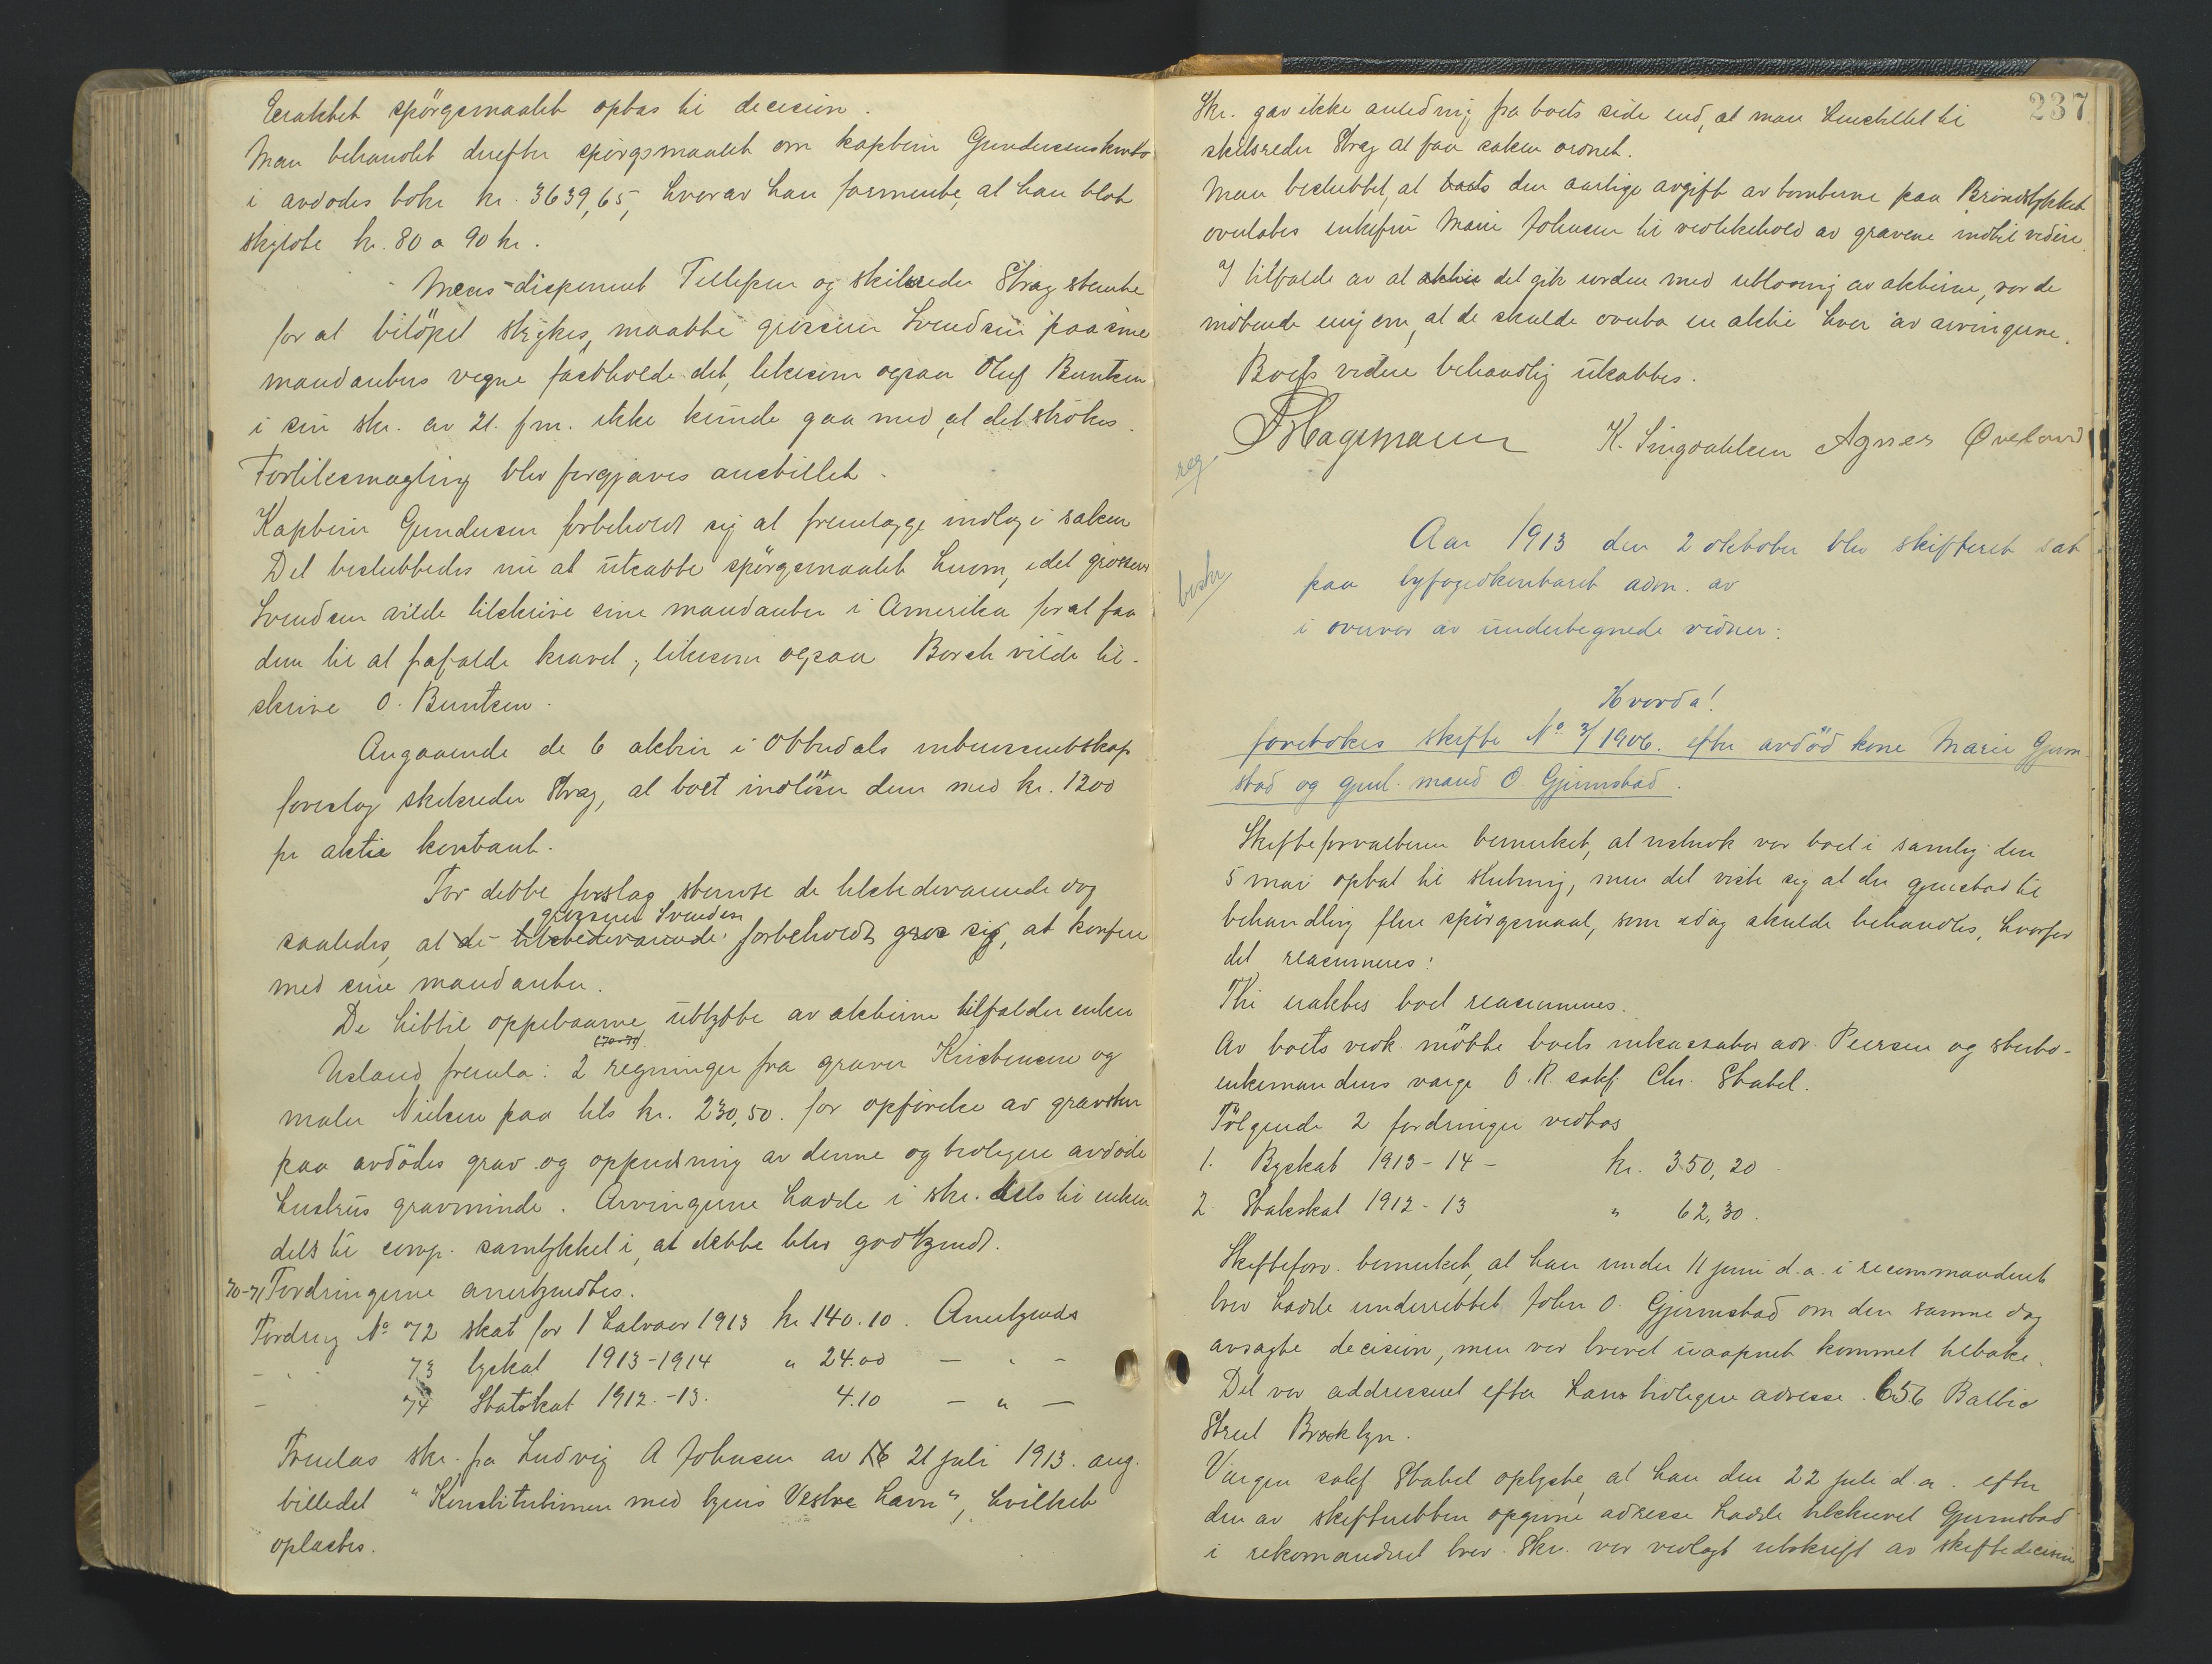 Eraktet spörgsmaalet optas til decision.
Man behandlet derefter spörgsmaalet om kaptein Gundersens konto
i avdødes bøker kr. 3639,65, hvorav han formente, at han blot
skyldte kr. 80 a 90 kr.
Mens disponent Tellefsen og skibsreder Stray stemte
for at beløpet strykes, maatte grosserer Svendsen paa sine
mandanters vegne fastholde det, likesom ogsaa Oluf Buntzen
i sin skr. av 21. f.m. ikke kunde gaa med, at det strökes.
Forliksmægling blev forgjæves anstillet.
Kaptein Gundersen forbeholdt sig at fremlægge indlæg i saken
Det besluttedes nu at utsætte spörgsmaalet herom, idet grosserer
Svendsen vilde tilskrive sine mandanter i Amerika for at faa
dem til at frafalde kravet, likesom ogsaa Borch vilde til-
skrive O. Buntzen.
Angaaende de 6 aktier i Ottredals interessentskap
foreslog skibsreder Stray, at boet indlöser dem med kr. 1200
pr aktie kontant.
For dette forslag stemte de tilstedeværende dog
grosserer Svendsen
saaledes, at de tilstedeværende forbeholdt gros sig, at konferere
med sine mandanter.
De hittil oppebaarne utbytte av aktierne tilfalder enken
(70-71)
Usland fremla: 2 regninger fra graver Kristensen og
maler Nielsen paa tils kr. 230,50. for opförelse av gravsten
paa avdödes grav og oppudsning av denne og tidligere avdöde
hustrus gravminde. Arvingerne hadde i skr. dels til enken
dels til comp. samtykket i, at dette blev godkjendt.
70-71 Fordringerne anerkjendtes.
Fordring No 72 skat for 1 halvaar 1913 kr 140.10. Anerkjendt
- " 73 byskat 1913-1914 " 24.00 - " -
- 74 Statskat 1912-13. 4.10 - " -
Fremlas skr. fra Ludvig A Johnsen av 16 21 juli 1913. ang.
billedet "Konstitutionen med byens Vestre havn", hvilket
oplæstes.
237
Skr. gav ikke anledning fra boets side end, at man henstillet til
skibsreder Stray at faa saken ordnet.
Man besluttet, at boets den aarlige avgift av tomterne paa Brændstykket
overlates enkefru Marie Johnsen til vedlikehold av gravene indtil videre.
I tilfælde av at aktie det gik iorden med utlosning av aktierne, var de
mötende enig om, at de skulde overta en aktie hver av arvingerne.
Boets videre behandling utsattes.
Hagemann K. Singdahlsen Agnes Øveland
reg.
Aar 1913 den 2 oktober blev skifteret sat
beskr
paa byfogedkontoret adm. av
i overvær av undertegnede vidner:
Hvorda!
foretokes skifte No 3/1906. efter avdöd kone Marie Gjerm-
stad og gjenl. mand O. Gjermstad.
Skifteforvalteren bemerket, at nestnok var boet i samling den
5 mai optat til slutning, men det viste sig at der gjenstod til
behandling flere spörgsmaal, som idag skulde behandles, hvorfor
det reassumeres:
Thi eraktes boet reassumeres.
Av boets vedk. mötte boets inkassator adv. Peersen og sterbo-
enkemandens værge O.R. sakf. Chr. Stabel.
Fölgende 2 fordringer vedtas
1. Byskat 1913-14 - kr. 350,20.
2 Statskat 1912-13 " 62,30.
Skifteforv. bemerket, at han under 11 juni d.a. i recommanderet
brev hadde underrettet John O. Gjermstad om den samme dag
avsagte decision, men var brevet uaapnet kommet tilbake.
Det var addresseret efter hans tidligere adresse. 656 Baltic
Street Brooklyn.
Værgen sakf Stabel oplyste, at han den 22 juli d.a. efter
den av skifteretten opgivne adresse hadde tilskrevet Gjermstad
i rekomanderet brev. Skr. var vedlagt utskrift av skiftedecision